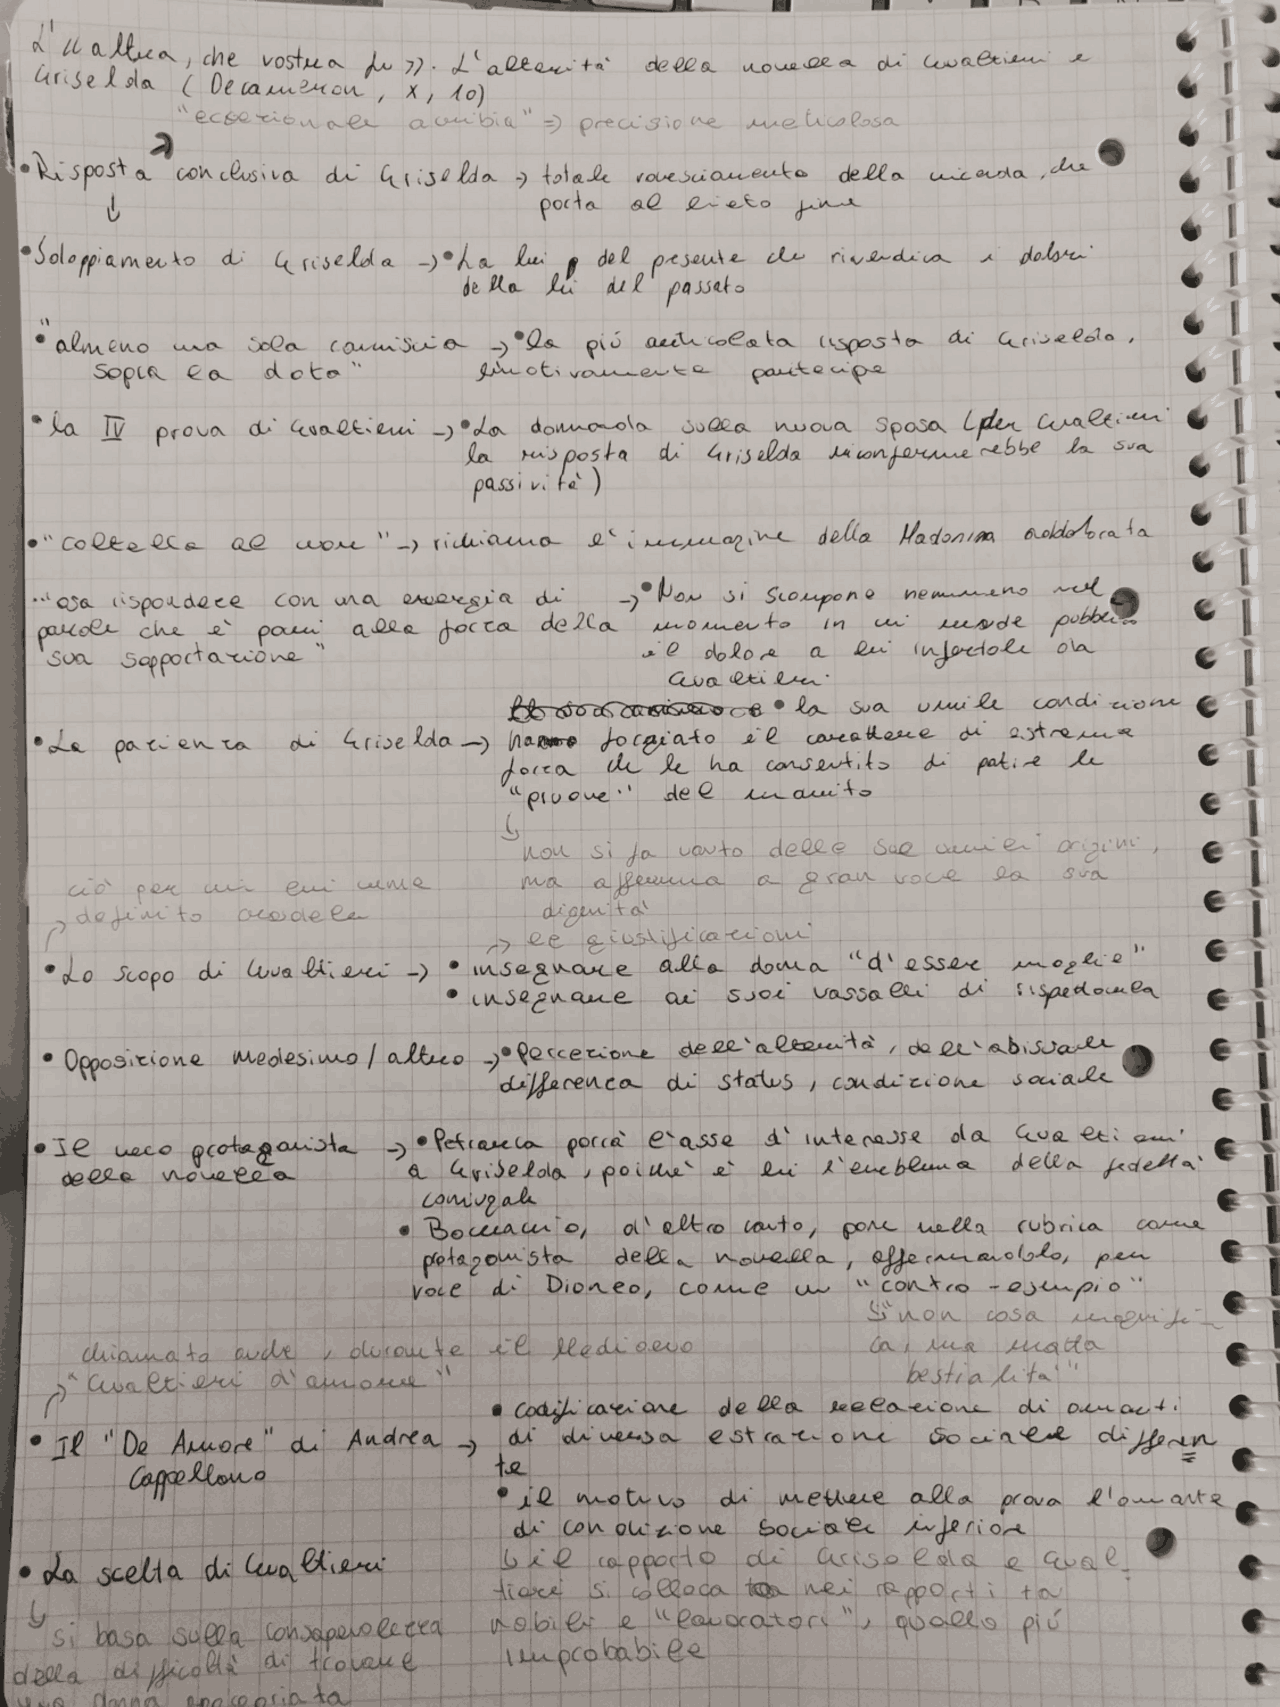 L'"altra, che vostra fu». L'alterità della novella di Gualtieri e
Griselda (Decameron, X, 10)
"eccezionale acribia" => precisione meticolosa
• Risposta conclusiva di Griselda → totale rovesciamento della vicenda, che
porta al lieto fine
• Sdoppiamento di Griselda → • La lei del presente che rivendica i dolori
della lei del passato
• "almeno una sola camiscia → • la più articolata risposta di Griselda,
sopra la dota" emotivamente partecipe
• la IV prova di Gualtieri → • La domanda sulla nuova sposa (per Gualtieri
la risposta di Griselda riconfermerebbe la sua
passività)
• "coltella al cuore" → richiama l'immagine della Madonna addolorata
"osa rispondere con una energia di → • Non si scompone nemmeno nel
parole che è pari alla forza della momento in cui rende pubblico
sua sopportazione" il dolore a lei infertole da
Gualtieri.
• la sua umile condizione
• La pazienza di Griselda → ha forgiato il carattere di estrema
forza che le ha consentito di patire le
"pruove" del marito
↳
non si fa vanto delle sue umili origini,
ma afferma a gran voce la sua
dignità
ciò per cui egli viene
→ definito crudele
→ le giustificazioni
• Lo scopo di Gualtieri → • insegnare alla donna "d'esser moglie"
• insegnare ai suoi vassalli di rispettarla
• Opposizione medesimo/altro → • Percezione dell'alterità, dell'abissale
differenza di status, condizione sociale
• Il vero protagonista → • Petrarca porrà l'asse d'interesse da Gualtieri
della novella a Griselda, poiché è lei l'emblema della fedeltà
coniugale
• Boccaccio, d'altro canto, pone nella rubrica come
protagonista della novella, affermandolo, per
voce di Dioneo, come un "contro-esempio"
↳ "non cosa magnifi-
ca, ma matta
bestialità"
chiamato anche, durante il Medioevo
→ "Gualtieri d'amore"
• codificazione della relazione di amanti
• Il "De Amore" di Andrea → di diversa estrazione sociale differen
Cappellano te
• il motivo di mettere alla prova l'amante
di condizione sociale inferiore
• La scelta di Gualtieri
↳ il rapporto di Griselda e Gual-
tieri si colloca nei rapporti tra
nobili e "lavoratori", quello più
improbabile
↳ si basa sulla consapevolezza
della difficoltà di trovare
una donna appropriata